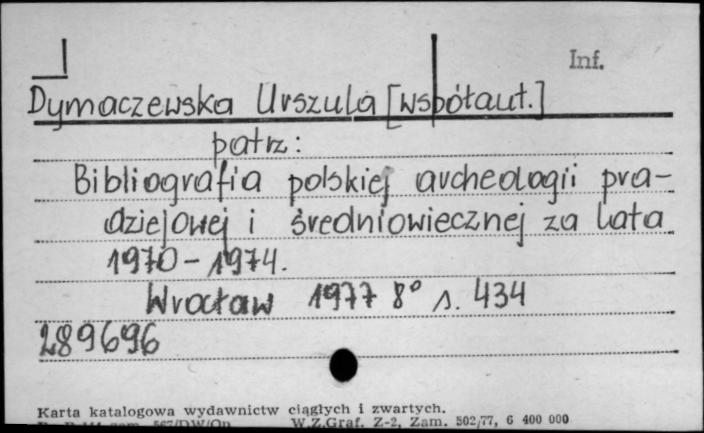 Inf.
Dymaczewska Urszula [współaut.]
patrz:
Bibliografia polskiej archeologii pra-
dziejowej i średniowiecznej za lata
1970-1974.
Wrocław 1977 8° s. 434
289696
Karta katalogowa wydawnictw ciągłych i zwartych.
W.Z.Graf. Z-2, Zam. 502/77, 6 400 000